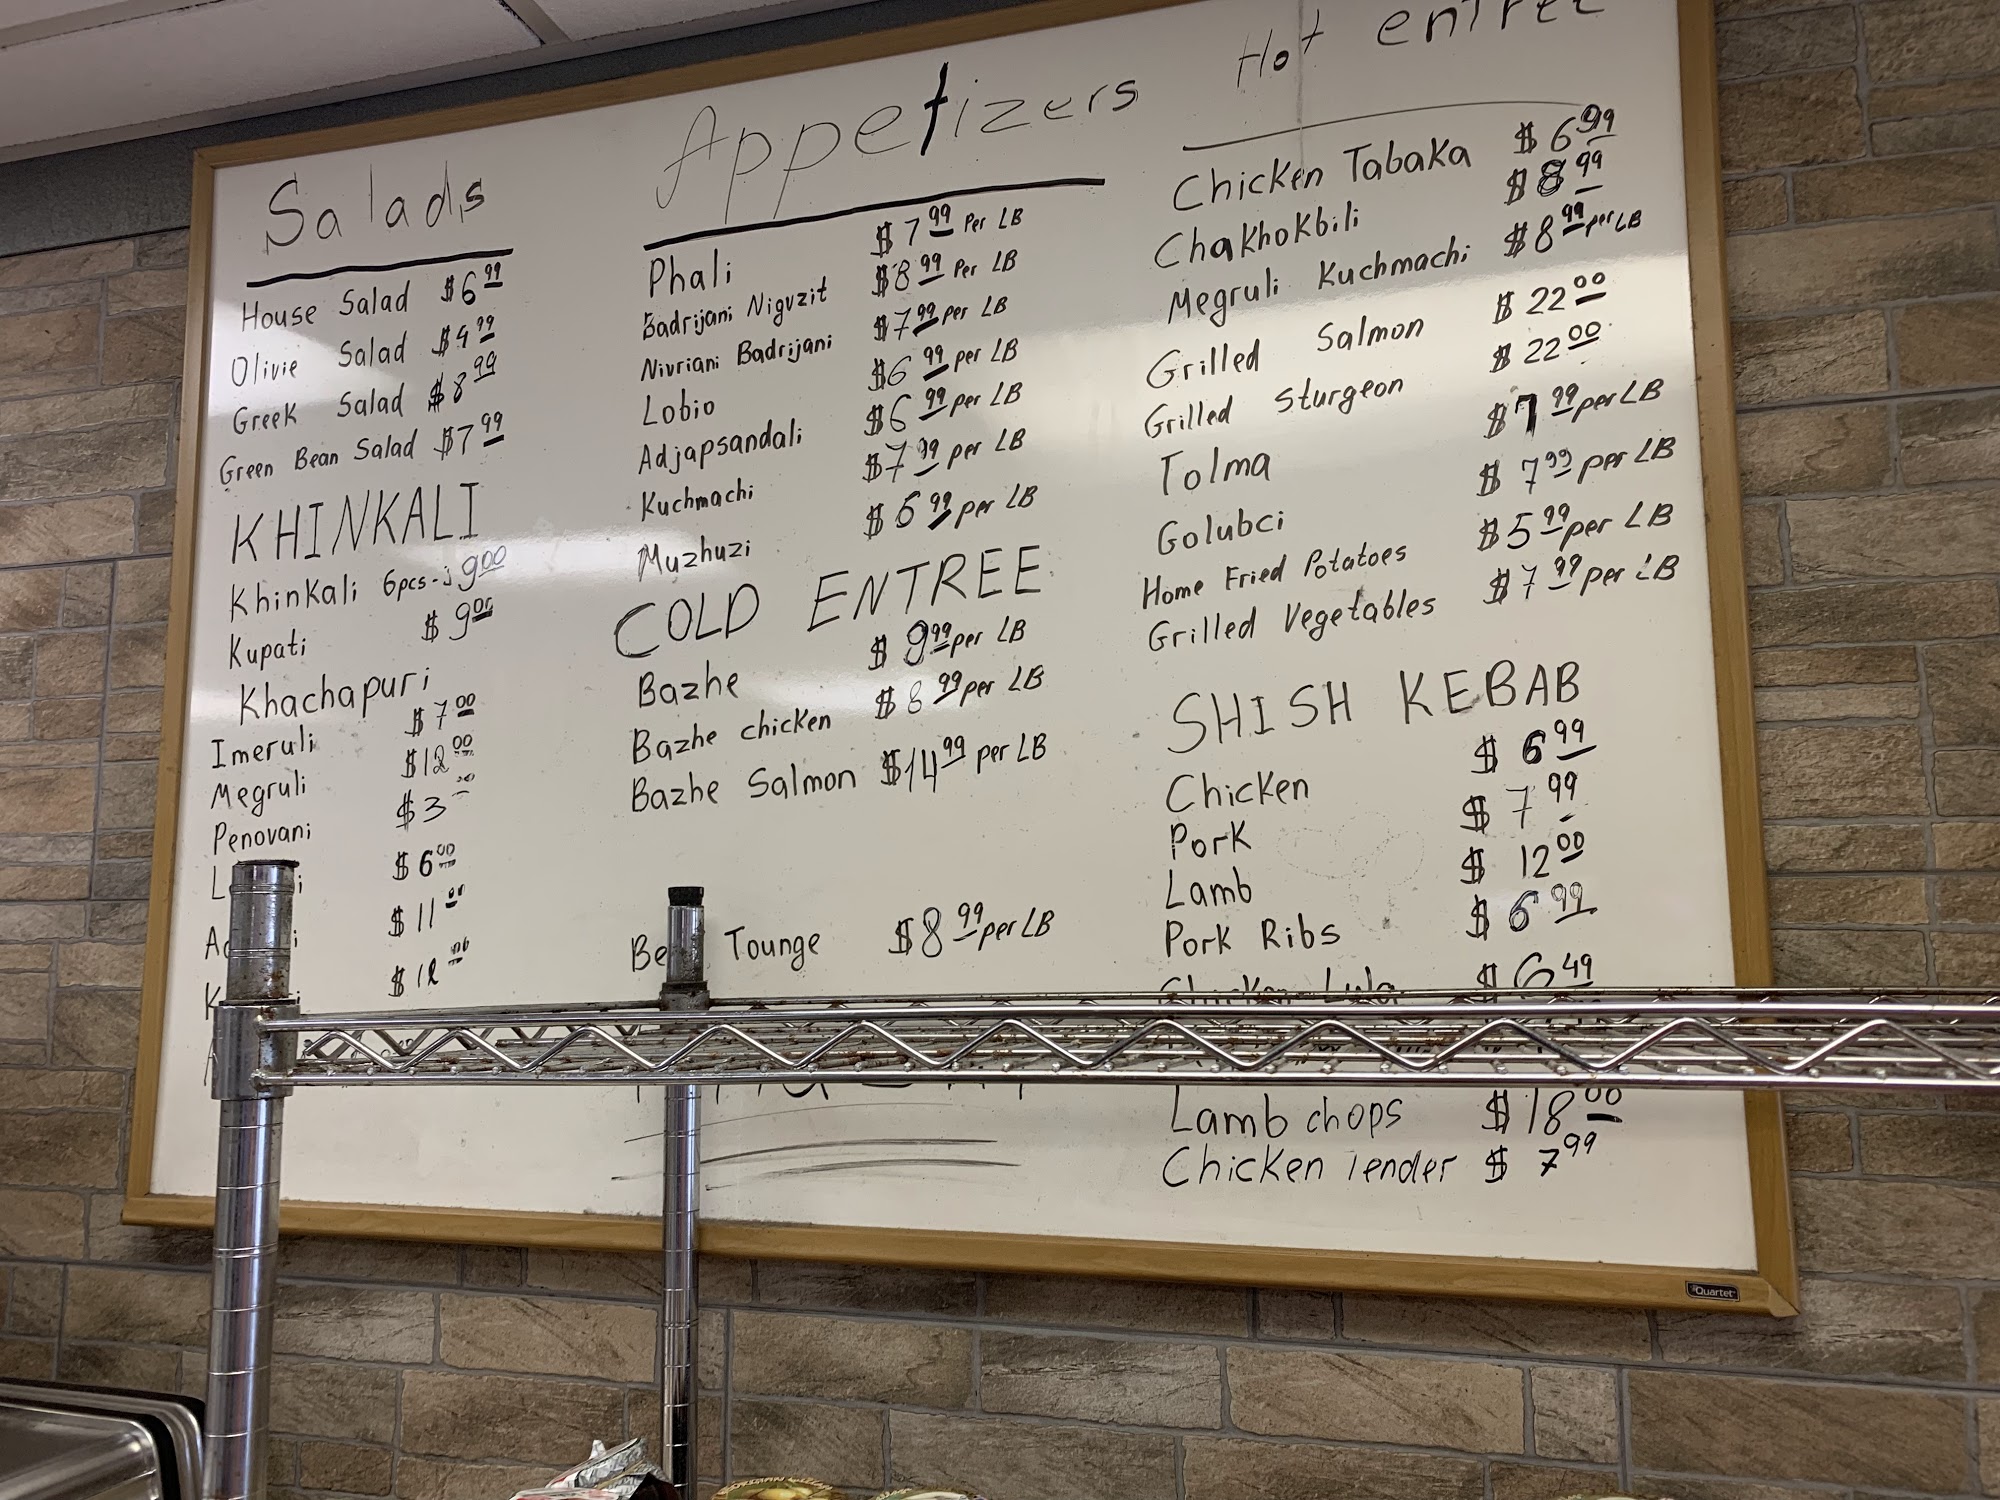 Salads
House Salad $6.99
Olivie Salad $4.99
Greek Salad $8.99
Green Bean Salad $7.99
KHINKALI
Khinkali 6pcs- 9.00
Kupati $9.00
Khachapuri
Imeruli $7.00
Megruli $12.00
Penovani $3
$6.00
$11.00
$12.00
Appetizers
Phali $7.99 Per LB
Badrijani Nigvzit $8.99 Per LB
Nivriani Badrijani $7.99 per LB
Lobio $6.99 per LB
Adjapsandali $6.99 per LB
Kuchmachi $7.99 per LB
Muzhuzi $6.99 per LB
COLD ENTREE
Bazhe $9.99 per LB
Bazhe chicken $8.99 per LB
Bazhe Salmon $14.99 per LB
Tounge $8.99 per LB
Hot entree
Chicken Tabaka $6.99
Chakhokbili $8.99
Megruli Kuchmachi $8.99 per LB
Grilled Salmon $22.00
Grilled Sturgeon $22.00
Tolma $7.99 per LB
Golubci $7.99 per LB
Home Fried Potatoes $5.99 per LB
Grilled Vegetables $7.99 per LB
SHISH KEBAB
Chicken $6.99
Pork $7.99
Lamb $12.00
Pork Ribs $6.99
Chicken Lula $6.49
Lamb chops $18.00
Chicken Tender $7.99
Quartet